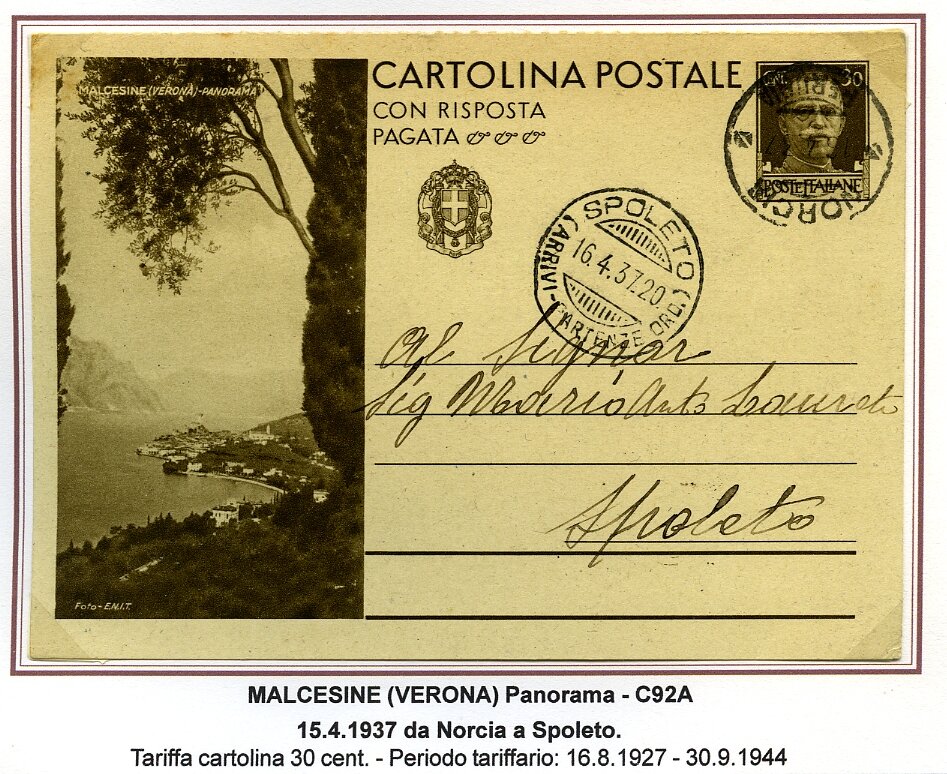 MALCESINE (VERONA) - PANORAMA
CARTOLINA POSTALE
CON RISPOSTA
PAGATA
CENT. 30
POSTE ITALIANE
NORCIA
PERUGIA
SPOLETO
16.4.37.20
(ARRIVI - PARTENZE ORD.)
Al Signor
Sig Mario
Spoleto
Foto - E.N.I.T.
MALCESINE (VERONA) Panorama - C92A
15.4.1937 da Norcia a Spoleto.
Tariffa cartolina 30 cent. - Periodo tariffario: 16.8.1927 - 30.9.1944